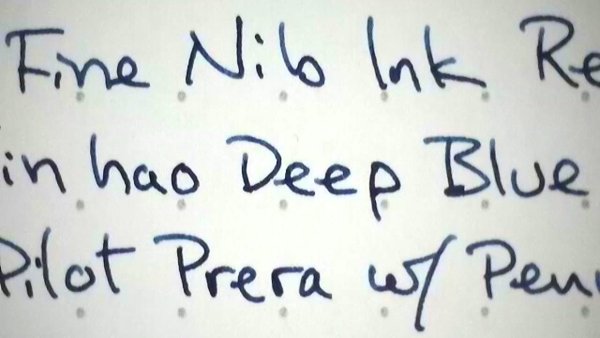 Fine Nib Ink Re
in hao Deep Blue
Pilot Prera w/ Pen